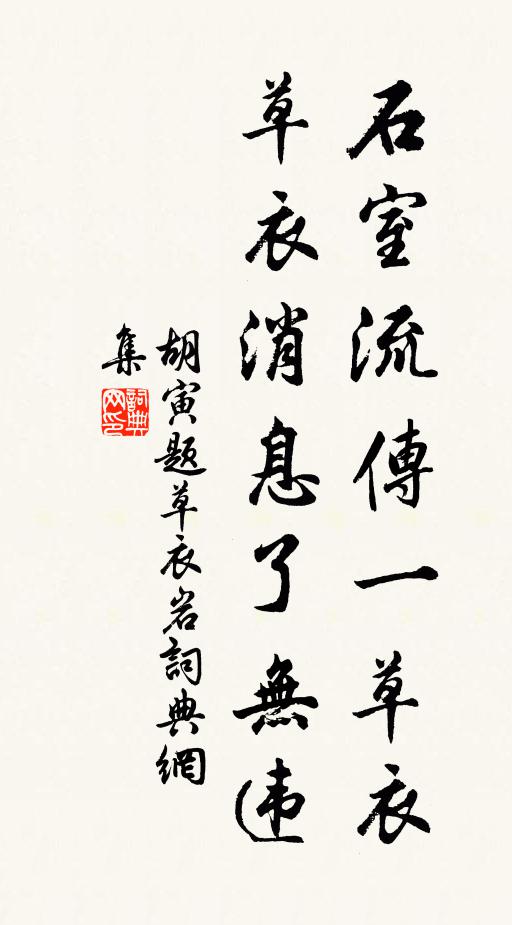 石室流傳一草衣
草衣消息了無违
胡寅题草衣岩詞典網
集
詞典
网印